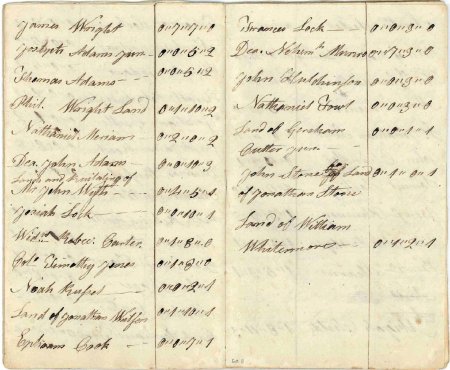 James Wright 0"7"7"0
Joseph Adams Junr 0"0"5"2
Thomas Adams 0"0"5"2
Phil. Wright Land 0"1"10"2
Nathaniel Meriam 0"2"0"2
Dea. John Adams 0"0"10"3
of
Mr. John 0"1"5"1
Josiah Lock 0"0"10"1
Wido. Rebec. Carter 0"1"8"0
Colo. Timothy Jones 0"1"3"0
Noah 0"0"2"1
Land of Jonathan 0"1"10"1
Ephraim Cook 0"0"7"1
Frances Lock 0"0"8"0
Dea. 0"7"3"0
John Hutchinson 0"0"3"0
Nathaniel Fowl 0"0"3"0
Land of Gershom 0"0"1"1
Cutter Junr
John Stone Land 0"1"0"1
of Jonathan Stone
Land of William
Whitemore 0"1"2"1